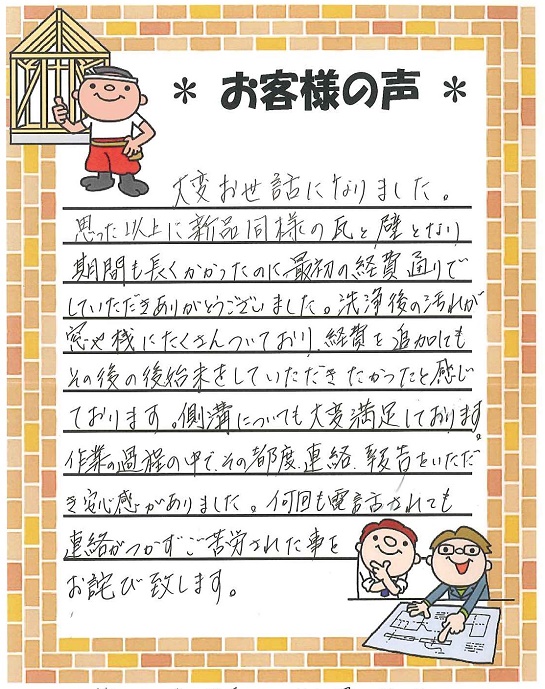 * お客様の声 *
大変お世話になりました。
思った以上に新品同様の瓦と壁となり
期間も長くかかったのに最初の経費通りで
していただきありがとうございました。洗浄後の汚れが
窓や桟にたくさんついており、経費を追加しても
その後の後始末をしていただきたかったと感じ
ております。側溝についても大変満足しております。
作業の過程の中で、その都度、連絡、報告をいただ
き安心感がありました。何回も電話されても
連絡がつかずご苦労された事を
お詫び致します。